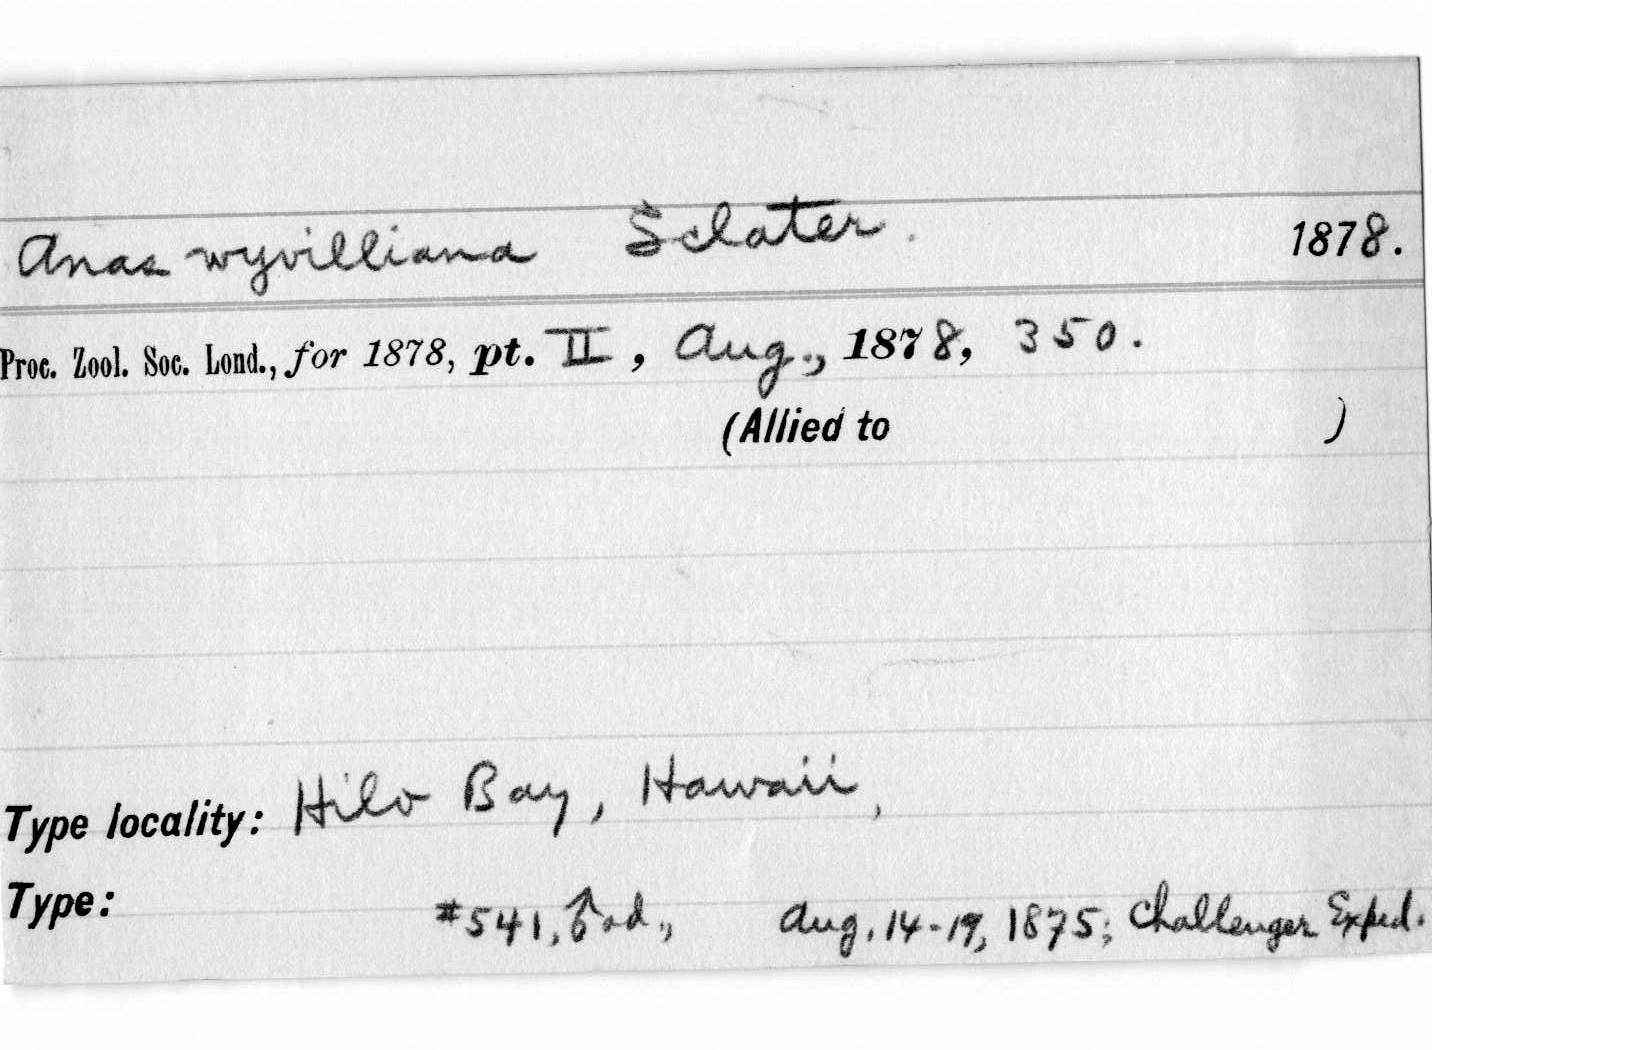 Anas wyvilliana Sclater. 1878.
Proc. Zool. Soc. Lond., for 1878, pt. II, Aug., 1878, 350.
(Allied to )
Type locality: Hilo Bay, Hawaii,
Type: #541, ♂ ad., Aug. 14-19, 1875; Challenger Exped.